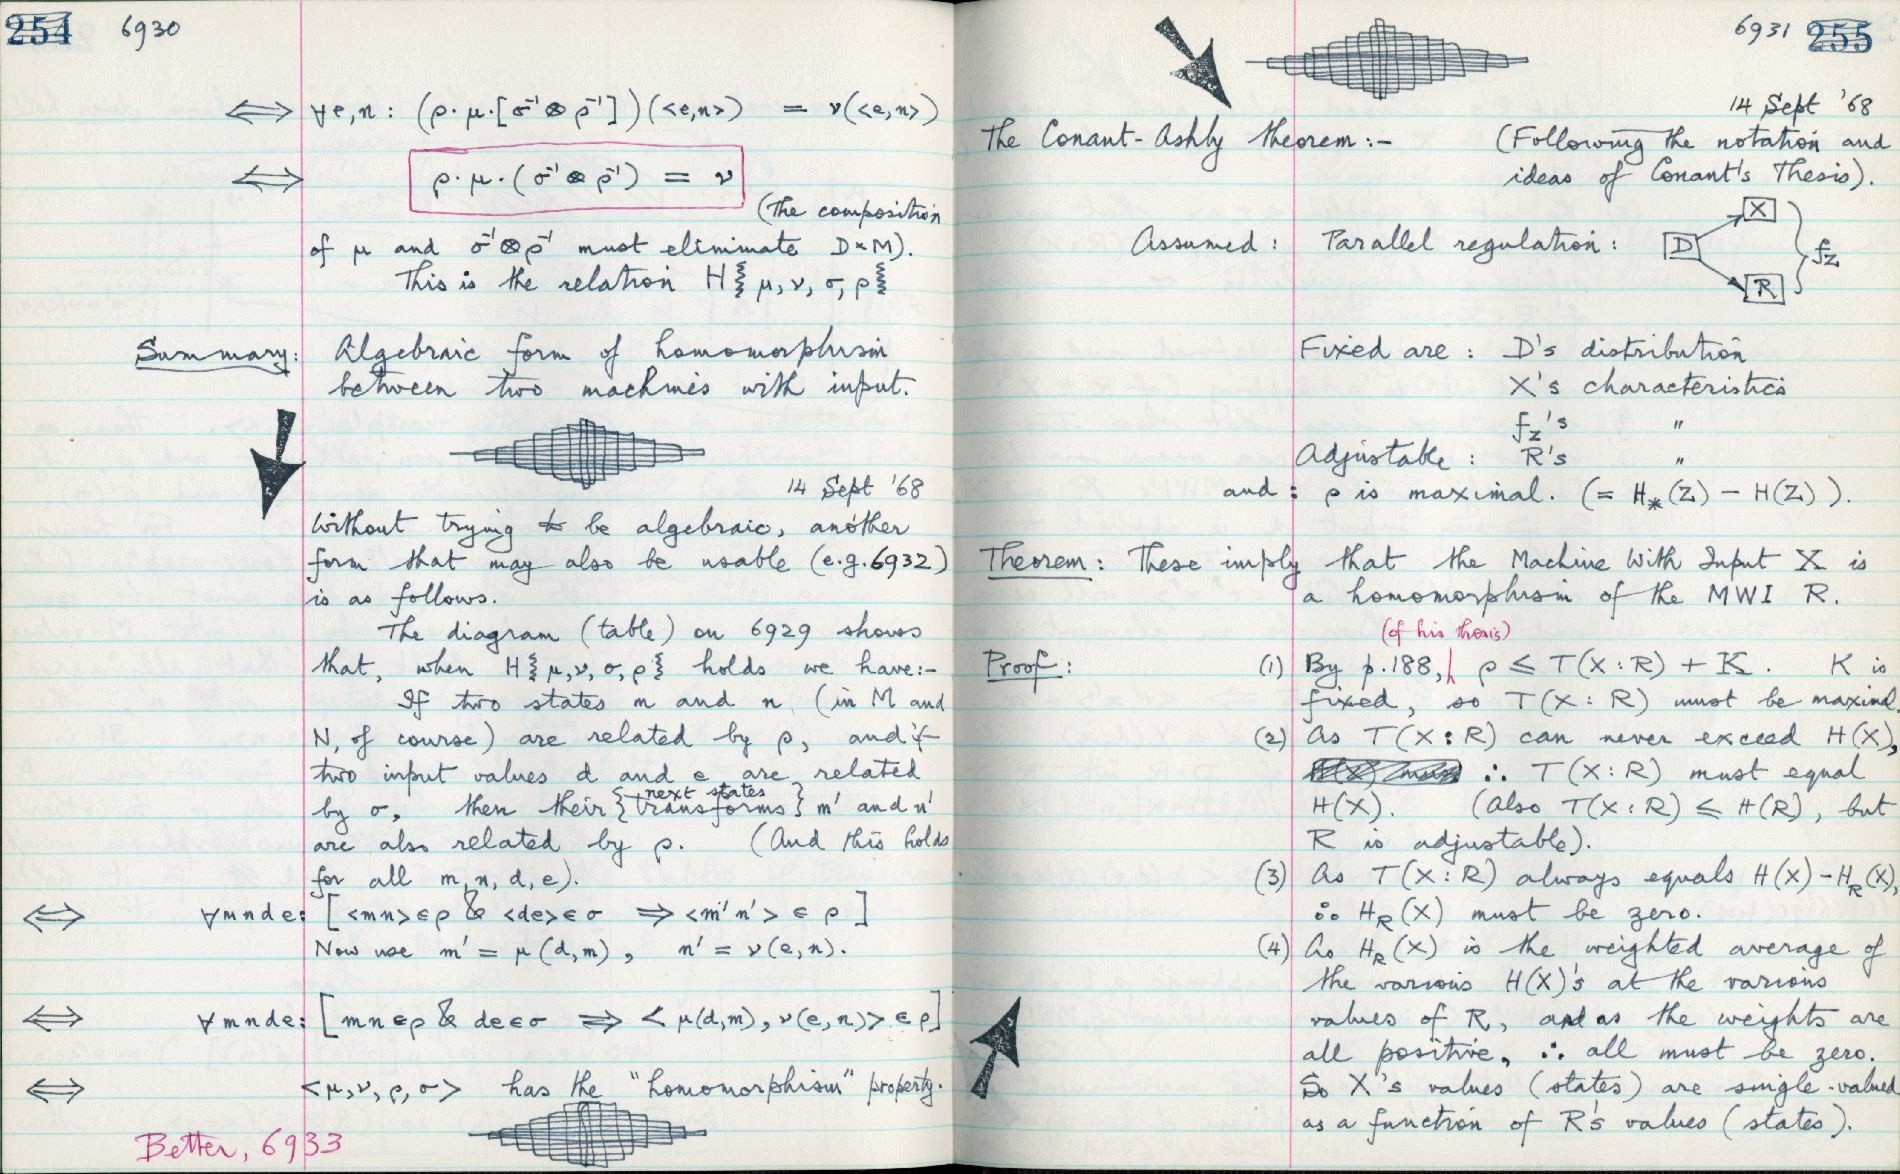 254 6930
⟺ ∀e,n: (ρ·μ·[σ⁻¹⊗ρ⁻¹])(<e,n>) = ν(<e,n>)
⟺ ρ·μ·(σ⁻¹⊗ρ⁻¹) = ν
(The composition
of μ and σ⁻¹⊗ρ⁻¹ must eliminate D×M).
This is the relation H{μ,ν,σ,ρ}
Summary: Algebraic form of homomorphism
between two machines with input.
14 Sept '68
Without trying to be algebraic, another
form that may also be usable (e.g. 6932)
is as follows.
The diagram (table) on 6929 shows
that, when H{μ,ν,σ,ρ} holds we have:-
If two states m and n (in M and
N, of course) are related by ρ, and if
two input values d and e are related
next states
by σ, then their {transforms} m' and n'
are also related by ρ. (And this holds
for all m,n,d,e).
⟺ ∀mnde: [<mn>∈ρ & <de>∈σ ⟹ <m'n'> ∈ ρ]
Now use m' = μ(d,m), n' = ν(e,n).
⟺ ∀mnde: [mn∈ρ & de∈σ ⟹ <μ(d,m), ν(e,n)> ∈ρ]
⟺ <μ,ν,ρ,σ> has the "homomorphism" property.
Better, 6933
6931 255
14 Sept '68
The Conant-Ashby theorem:- (Following the notation and
ideas of Conant's Thesis).
X
Assumed: Parallel regulation: D f_Z
R
Fixed are: D's distribution
X's characteristics
f_Z's "
Adjustable: R's "
and: ρ is maximal. (= H_*(Z) − H(Z)).
Theorem: These imply that the Machine With Input X is
a homomorphism of the MWI R.
(of his thesis)
Proof: (1) By p.188, ρ ≤ T(X:R) + K. K is
fixed, so T(X:R) must be maximal.
(2) As T(X:R) can never exceed H(X),
∴ T(X:R) must equal
H(X). (Also T(X:R) ≤ H(R), but
R is adjustable).
(3) As T(X:R) always equals H(X)−H_R(X),
∴ H_R(X) must be zero.
(4) As H_R(X) is the weighted average of
the various H(X)'s at the various
values of R, and as the weights are
all positive, ∴ all must be zero.
So X's values (states) are single-valued
as a function of R's values (states).